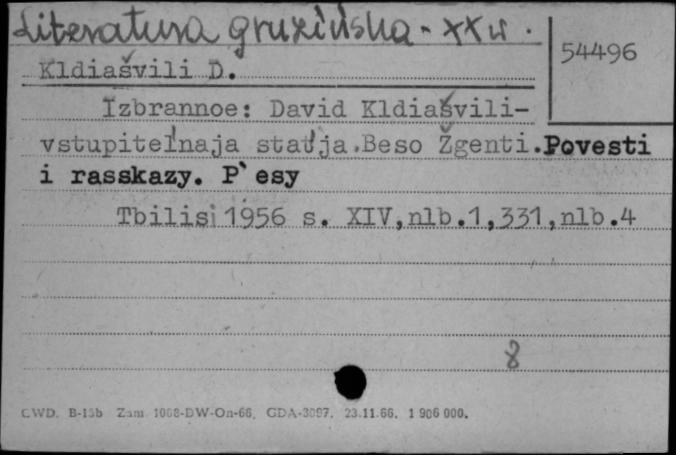 Literatura gruzińska - XX w.
54496
Kldiašvili D.
Izbrannoe: David Kldiašvili-
vstupitel'naja stat'ja.Beso Žgenti.Povesti
i rasskazy. P`esy
Tbilisi 1956 s. XIV,nlb.1,331,nlb.4
8
CWD. B-15b Zam. 1068-DW-On-66. GDA-3097. 23.11.66. 1 906 000.